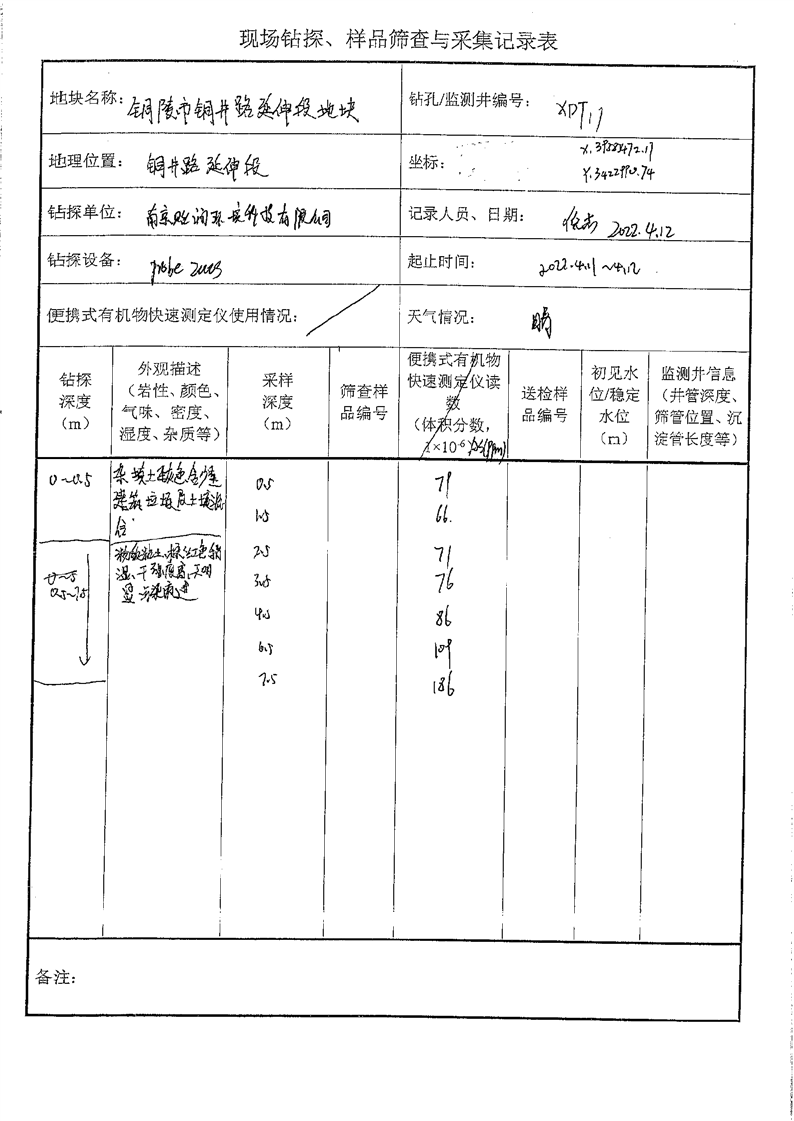 现场钻探、样品筛查与采集记录表
地块名称：铜陵市铜井路延伸段地块
钻孔/监测井编号： XDT17
地理位置： 铜井路延伸段
坐标：
Y.3422990.74
钻探单位： 南京 环境科技有限公司
记录人员、日期： 2022.4.12
钻探设备： probe
起止时间： 2022.4.11～4.12
便携式有机物快速测定仪使用情况：
天气情况： 晴
钻探
深度
（m）
外观描述
（岩性、颜色、
气味、密度、
湿度、杂质等）
采样
深度
（m）
筛查样
品编号
便携式有机物
快速测定仪读
数
（体积分数，
1×10-6
(ppm)
送检样
品编号
初见水
位/稳定
水位
（m）
监测井信息
（井管深度、
筛管位置、沉
淀管长度等）
0～0.5
杂填土 色含少量
建筑垃圾及土壤混
合
0.5 79
1.5 66
0.5～7.5
粉质粘土、棕红色稍
湿、干强度高、无明
显污染痕迹
2.5 71
3.5 76
4.5 86
6.5 109
7.5 186
备注：